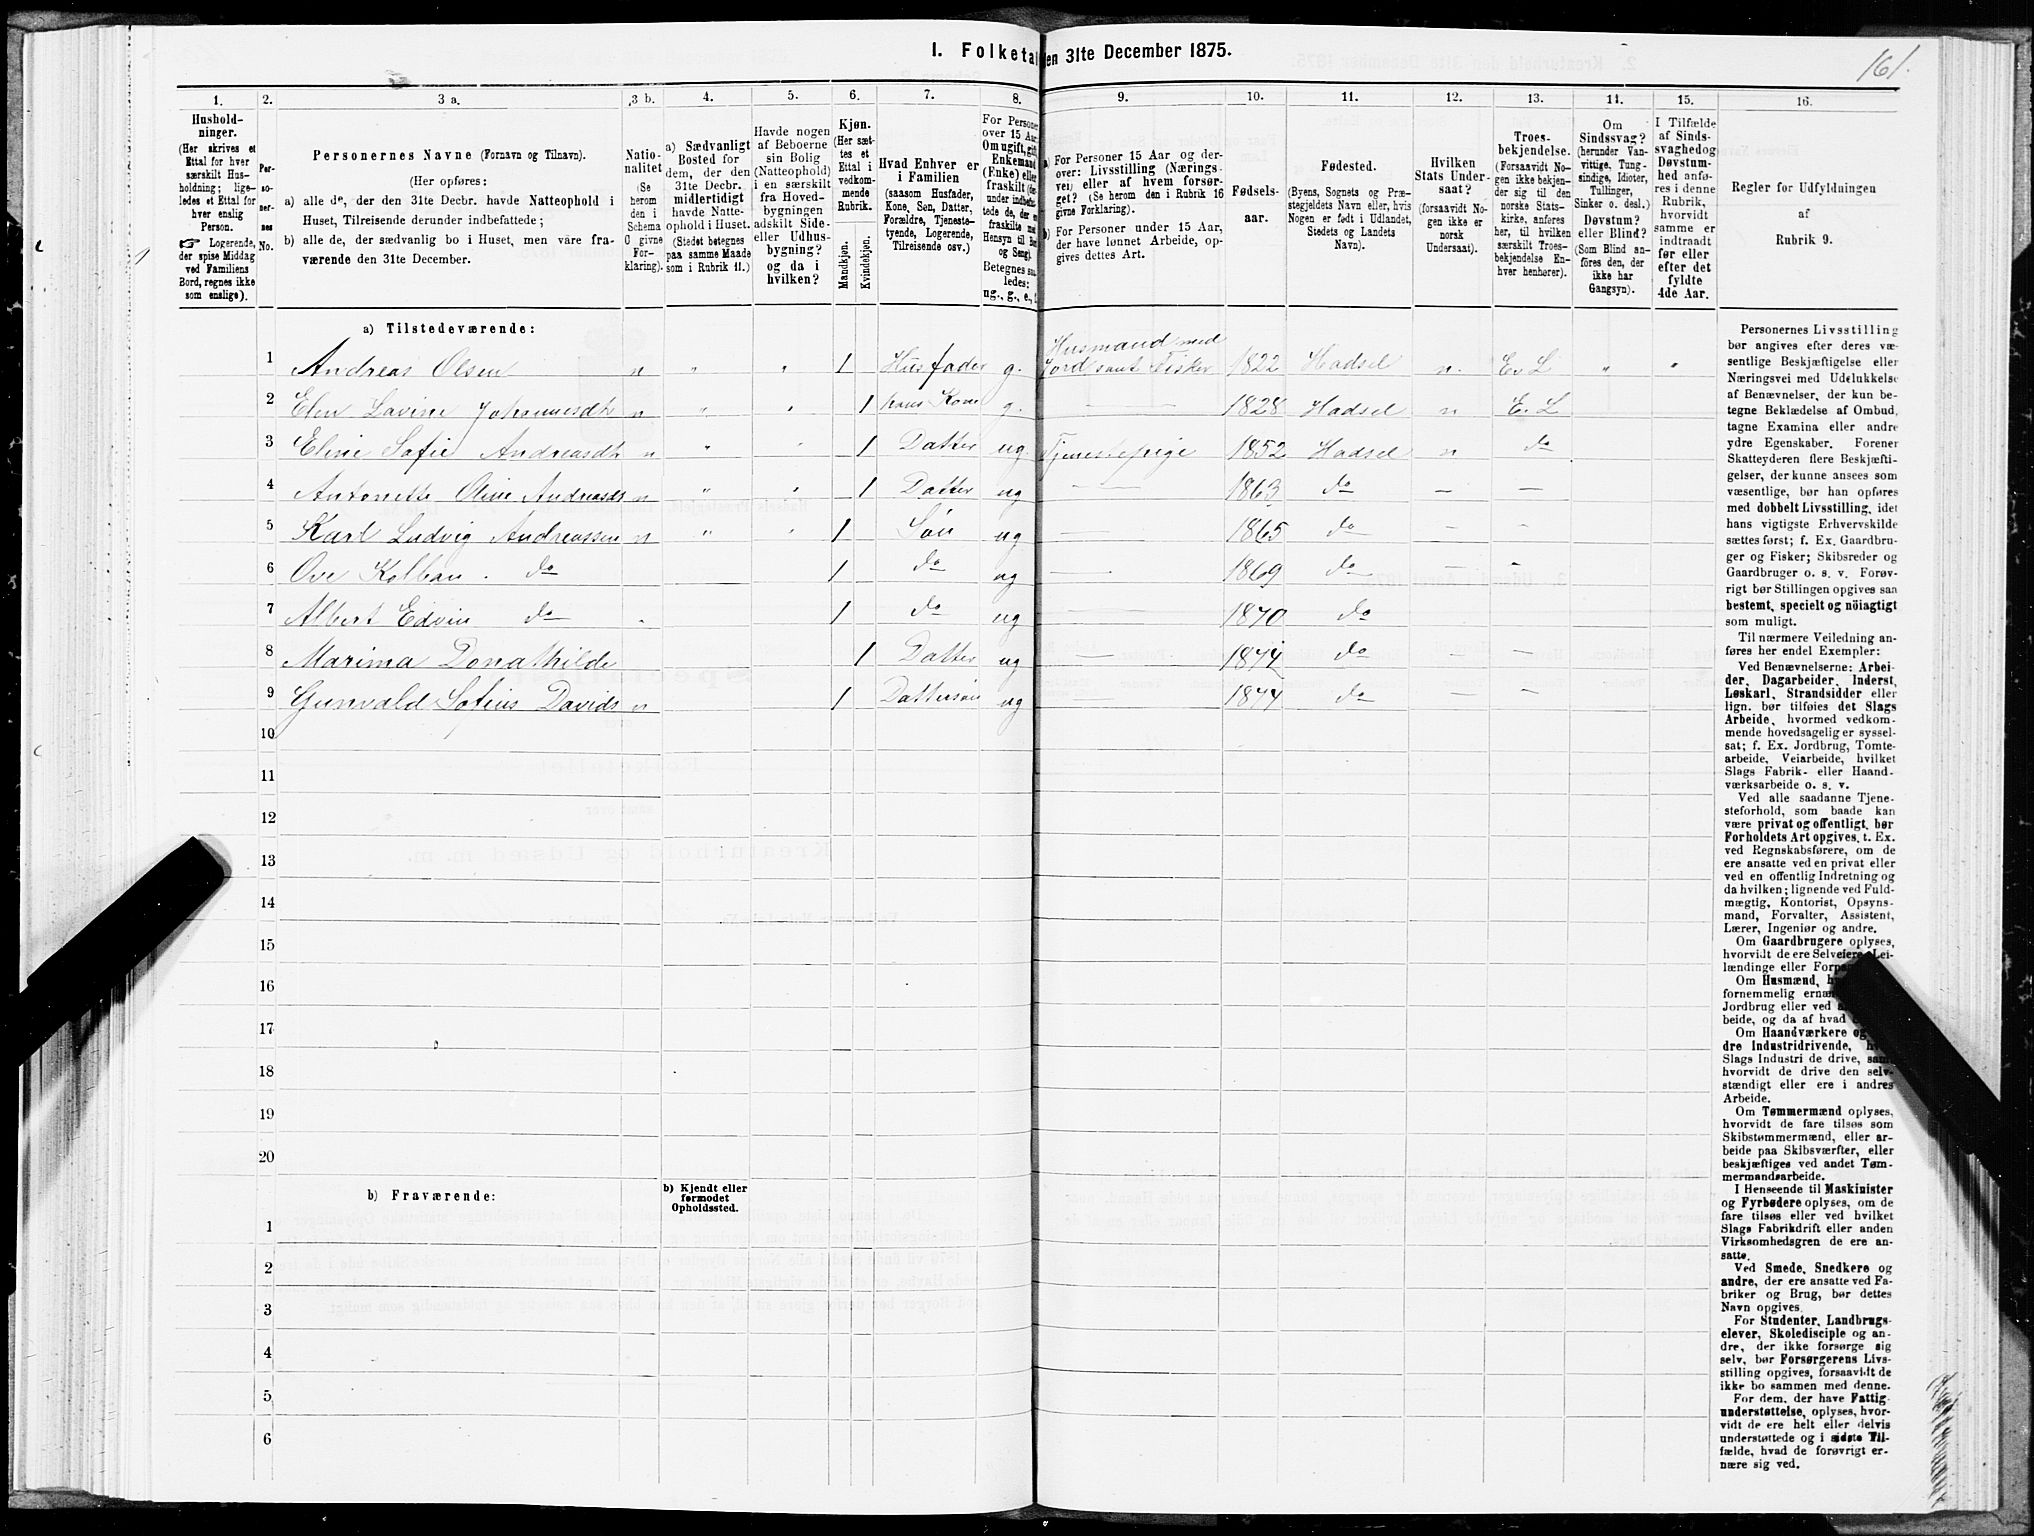 I. Folketal den 31te December 1875.
161.
1. 2. 3 a. 3 b. 4. 5. 6. 7. 8. 9. 10. 11. 12. 13. 14. 15. 16.
Hushold-
ninger.
(Her skrives et
Ettal for hver
særskilt Hus-
holdning; lige-
ledes et Ettal for
hver enslig
Person.
☞ Logerende,
der spise Middag
ved Familiens
Bord, regnes ikke
som enslige).
Per-
so-
ner-
nes
No.
Personernes Navne (Fornavn og Tilnavn).
(Her opføres:
a) alle de, der den 31te Decbr. havde Natteophold i
Huset, Tilreisende derunder indbefattede;
b) alle de, der sædvanlig bo i Huset, men vare fra-
værende den 31te December.
Natio-
nalitet
(Se
herom
den i
Schema
O givne
For-
klaring).
a) Sædvanligt
Bosted for
dem, der den
31te Decbr.
midlertidigt
havde Natte-
ophold i Huset.
(Stedet betegnes
paa samme Maade
som i Rubrik 11.)
Havde nogen
af Beboerne
sin Bolig
(Natteophold)
i en særskilt
fra Hoved-
bygningen
adskilt Side-
eller Udhus-
bygning?
og da i
hvilken?
Kjøn.
(Her sæt-
tes et
Ettal i
vedkom-
mende
Rubrik.
Mandkjøn.
Kvindekjøn.
Hvad Enhver er
i Familien
(saasom Husfader,
Kone, Søn, Datter,
Forældre, Tjeneste-
tyende, Logerende,
Tilreisende osv.)
For Personer
over 15 Aar
Om ugift, gift,
Enkemand
(Enke) eller
fraskilt
Betegnes saa-
ledes:
ug., g., e.,
a) For Personer 15 Aar og der-
over: Livsstilling (Nærings-
vei) eller af hvem forsør-
get? (Se herom den i Rubrik 16
givne Forklaring).
b) For Personer under 15 Aar,
der have lønnet Arbeide, op-
gives dettes Art.
Fødsels-
aar.
Fødested.
(Byens, Sognets og Præ-
stegjeldets Navn eller, hvis
Nogen er født i Udlandet,
Stedets og Landets
Navn).
Hvilken
Stats Under-
saat?
(forsaavidt No-
gen ikke er
norsk
Undersaat).
Troes-
bekjendelse.
(Forsaavidt No-
gen ikke bekjen-
der sig til den
norske Stats-
kirke, anføres
her, til hvilken
særskilt Troes-
bekjendelse En-
hver henhører).
Om
Sindssvag?
(herunder Van-
vittige, Tung-
sindige, Idioter,
Tullinger,
Sinker o. desl.)
Døvstum?
eller Blind?
(Som Blind an-
føres den, der
ikke har
Gangsyn).
I Tilfælde
af Sinds-
svaghed og
Døvstum-
hed anfø-
res i denne
Rubrik,
hvorvidt
samme er
indtraadt
før eller
efter det
fyldte
4de Aar.
Regler for Udfyldningen
af
Rubrik 9.
a) Tilstedeværende:
1 Andreas Olsen n " " 1 Husfader g. Husmand med
Jord samt Fisker 1822 Hadsel n. E. L " "
2 Elen Lavine Johannesdt n " " 1 hans Kone g. — 1828 Hadsel n E. L
3 Eline Sofie Andreasdt n " " 1 Datter ug. Tjenestepige 1852 Hadsel n do
4 Antonette Oline Andreasdt n " " 1 Datter ug — 1863 do — —
5 Karl Ludvig Andreassen n " " 1 Søn ug — 1865 do — —
6 Ove Kolban do 1 do ug — 1869 do — —
7 Albert Edvin do 1 do ug — 1870 do
8 Marima Donathilde 1 Datter ug 1874 do
9 Gunvald Sofius Davids n 1 Dattersøn ug 1874 do — —
10
11
12
13
14
15
16
17
18
19
20
b) Fraværende:
b) Kjendt eller
formodet
Opholdssted.
1
2
3
4
5
6
Personernes Livsstilling
bør angives efter deres væ-
sentlige Beskjæftigelse eller
Næringsvei med Udelukkelse
af Benævnelser, der kun be-
tegne Beklædelse af Ombud,
tagne Examina eller andre
ydre Egenskaber. Forener
Skatteyderen flere Beskjæfti-
gelser, der kunne ansees som
væsentlige, bør han opføres
med dobbelt Livsstilling, idet
hans vigtigste Erhvervskilde
sættes først; f. Ex. Gaardbru-
ger og Fisker; Skibsreder og
Gaardbruger o. s. v. Forøv-
rigt bør Stillingen opgives saa
bestemt, specielt og nöiagtigt
som muligt.
Til nærmere Veiledning an-
føres her endel Exempler:
Ved Benævnelserne: Arbei-
der, Dagarbeider, Inderst,
Løskarl, Strandsidder eller
lign. bør tilføies det Slags
Arbeide, hvormed vedkom-
mende hovedsagelig er syssel-
sat; f. Ex. Jordbrug, Tomte-
arbeide, Veiarbeide, hvilket
Slags Fabrik- eller Haand-
værksarbeide o. s. v.
Ved alle saadanne Tjene-
steforhold, som baade kan
være privat og offentligt, bør
Forholdets Art opgives, t. Ex.
ved Regnskabsførere, om de
ere ansatte ved en privat eller
ved en offentlig Indretning og
da hvilken; lignende ved Fuld-
mægtig, Kontorist, Opsyns-
mand, Forvalter, Assistent,
Lærer, Ingeniør og andre.
Om Gaardbrugere oplyses,
hvorvidt de ere Selveiere, Lei-
lændinge eller
Om Husmænd,
fornemmelig
Jordbrug eller ved
beide, og da af hvad
Om Haandværkere og
dre Industridrivende,
Slags Industri de drive, samt
hvorvidt de drive den selv-
stændigt eller ere i andres
Arbeide.
Om Tømmermænd oplyses,
hvorvidt de fare tilsøs som
Skibstømmermænd, eller ar-
beide paa Skibsværfter, eller
beskjæftiges ved andet Tøm-
mermandsarbeide.
I Henseende til Maskinister
og Fyrbødere oplyses, om de
fare tilsøs eller ved hvilket
Slags Fabrikdrift eller anden
Virksomhedsgren de ere an-
satte.
Ved Smede, Snedkere og
andre, der ere ansatte ved Fa-
briker og Brug, bør dettes
Navn opgives.
For Studenter, Landbrugs-
elever, Skoledisciple og an-
dre, der ikke forsørge sig
selv, bør Forsørgerens Livs-
stilling opgives, forsaavidt de
ikke bo sammen med denne.
For dem, der have Fattig-
understøttelse, oplyses, hvor-
vidt de ere helt eller delvis
understøttede og i sidste Til-
fælde, hvad de forøvrigt er-
nære sig ved.